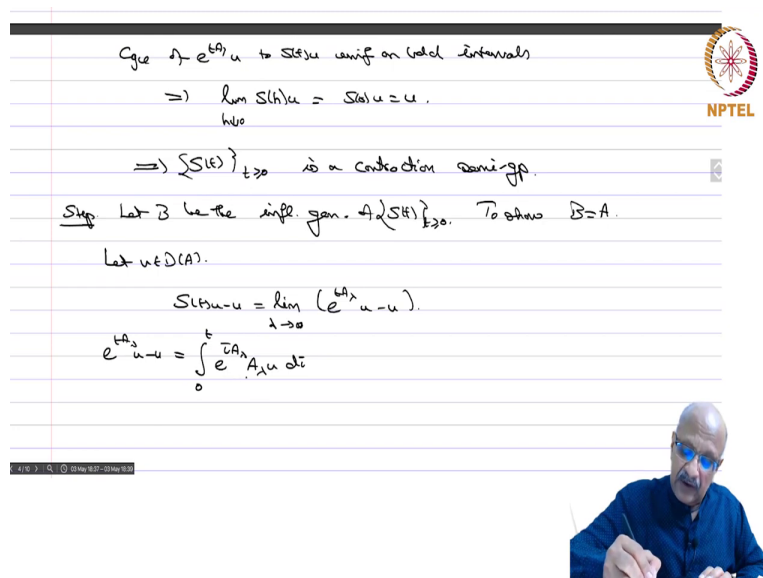 Cgce of e^{tA_λ} u to S(t)u unif on bdd intervals
⟹ lim_{h↓0} S(h)u = S(0)u = u.
⟹ {S(t)}_{t≥0} is a contraction semi-gp.
Step. Let B be the infl. gen. of {S(t)}_{t≥0}. To show B=A.
Let u∈D(A).
S(t)u-u = lim_{λ→∞} (e^{tA_λ}u-u).
e^{tA_λ}u-u = ∫_0^t e^{τA_λ} A_λ u dτ
NPTEL
4/10 03 May 18:37 - 03 May 18:39